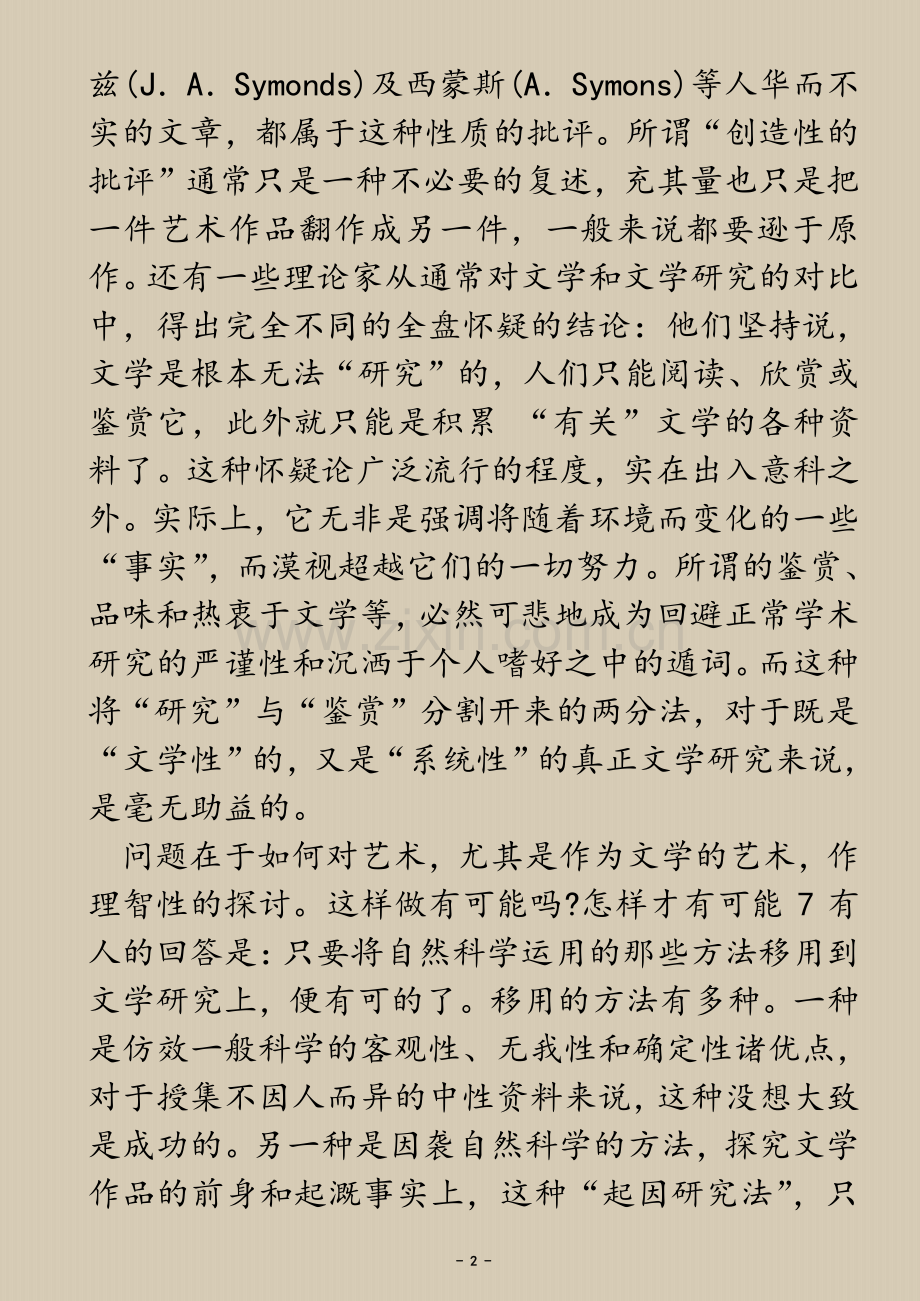 兹(J．A．Symonds)及西蒙斯(A．Symons)等人华而不
实的文章，都属于这种性质的批评。所谓“创造性的
批评”通常只是一种不必要的复述，充其量也只是把
一件艺术作品翻作成另一件，一般来说都要逊于原
作。还有一些理论家从通常对文学和文学研究的对比
中，得出完全不同的全盘怀疑的结论：他们坚持说，
文学是根本无法“研究”的，人们只能阅读、欣赏或
鉴赏它，此外就只能是积累 “有关”文学的各种资
料了。这种怀疑论广泛流行的程度，实在出入意科之
外。实际上，它无非是强调将随着环境而变化的一些
“事实”，而漠视超越它们的一切努力。所谓的鉴赏、
品味和热衷于文学等，必然可悲地成为回避正常学术
www.zixin.com.cn
研究的严谨性和沉洒于个人嗜好之中的遁词。而这种
将“研究”与“鉴赏”分割开来的两分法，对于既是
“文学性”的，又是“系统性”的真正文学研究来说，
是毫无助益的。
问题在于如何对艺术，尤其是作为文学的艺术，作
理智性的探讨。这样做有可能吗?怎样才有可能 7 有
人的回答是：只要将自然科学运用的那些方法移用到
文学研究上，便有可的了。移用的方法有多种。一种
是仿效一般科学的客观性、无我性和确定性诸优点，
对于授集不因人而异的中性资料来说，这种没想大致
是成功的。另一种是因袭自然科学的方法，探究文学
作品的前身和起溉事实上，这种“起因研究法”，只
- 2 -